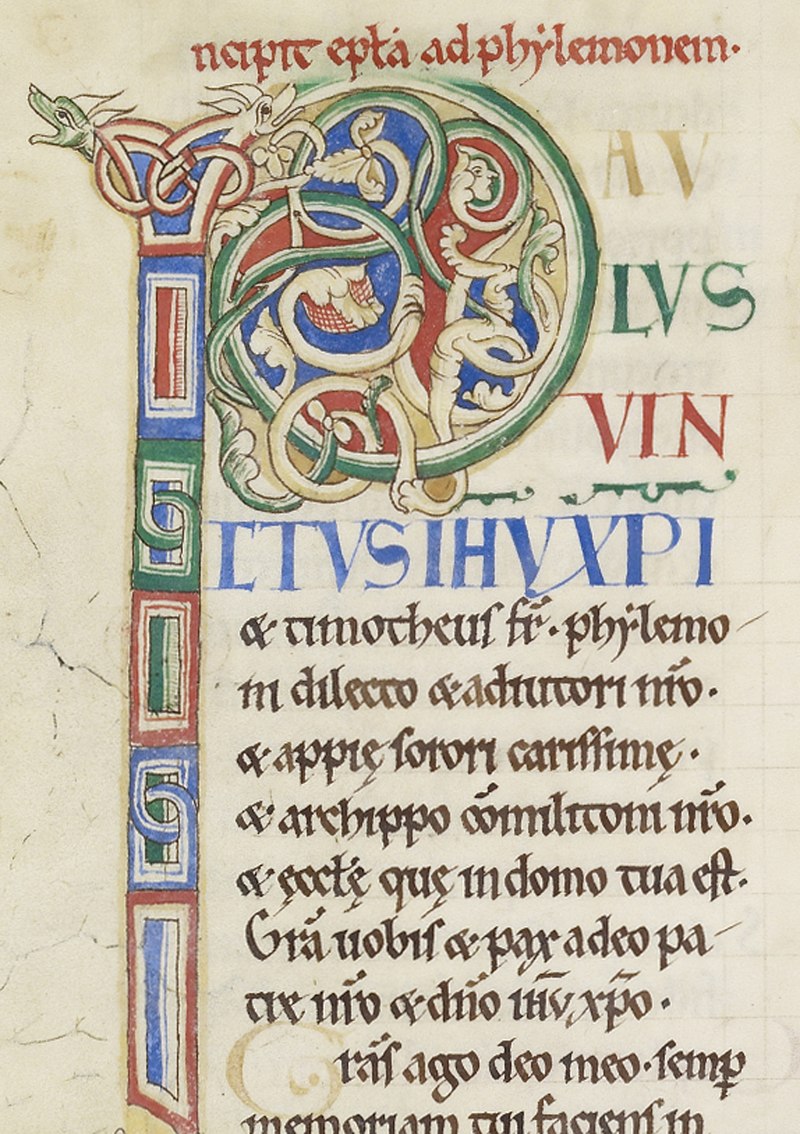 ncipit epłã ad phẏlemonem·
P AV
LVS
VIN
CTVS IHV XPI
& timotheus fr̃· phẏlemo-
ni dilecto & adiutori nr̃o·
& appię sorori carissimę·
& archippo cõmilitoni nr̃o·
& ęccłę quę in domo tua est·
Grã uobis & pax a deo pa-
tre nr̃o & dño ihũ xp̃o·
Grãs ago deo meo· semꝑ
memoriam tui faciens in